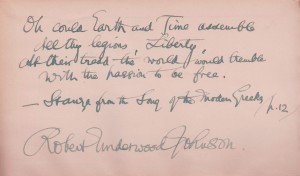 Oh could Earth and Time assemble
All thy legions, Liberty,
At their tread the world would tremble
With the passion to be free.
— Stanza from the Song of the Modern Greeks p. 12
Robert Underwood Johnson.